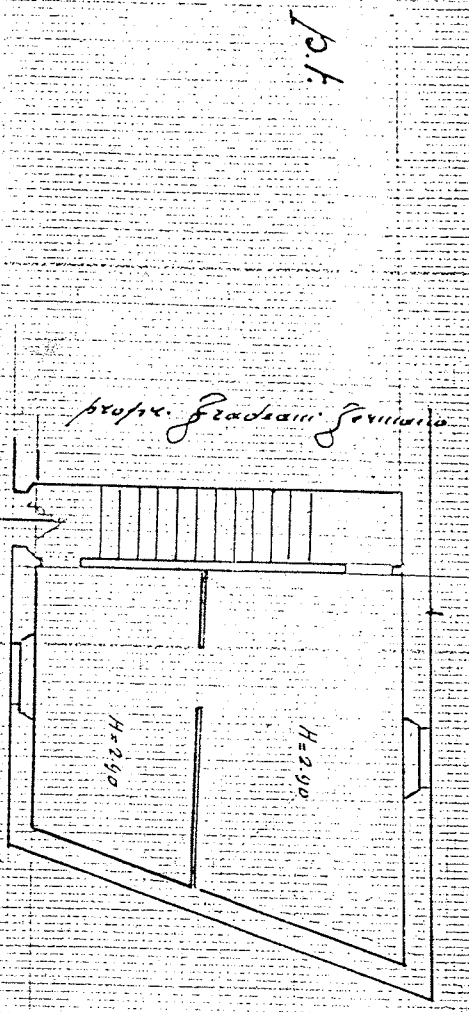 p.t.
propr. Fradeani Germano
H=2.90
H=2.90